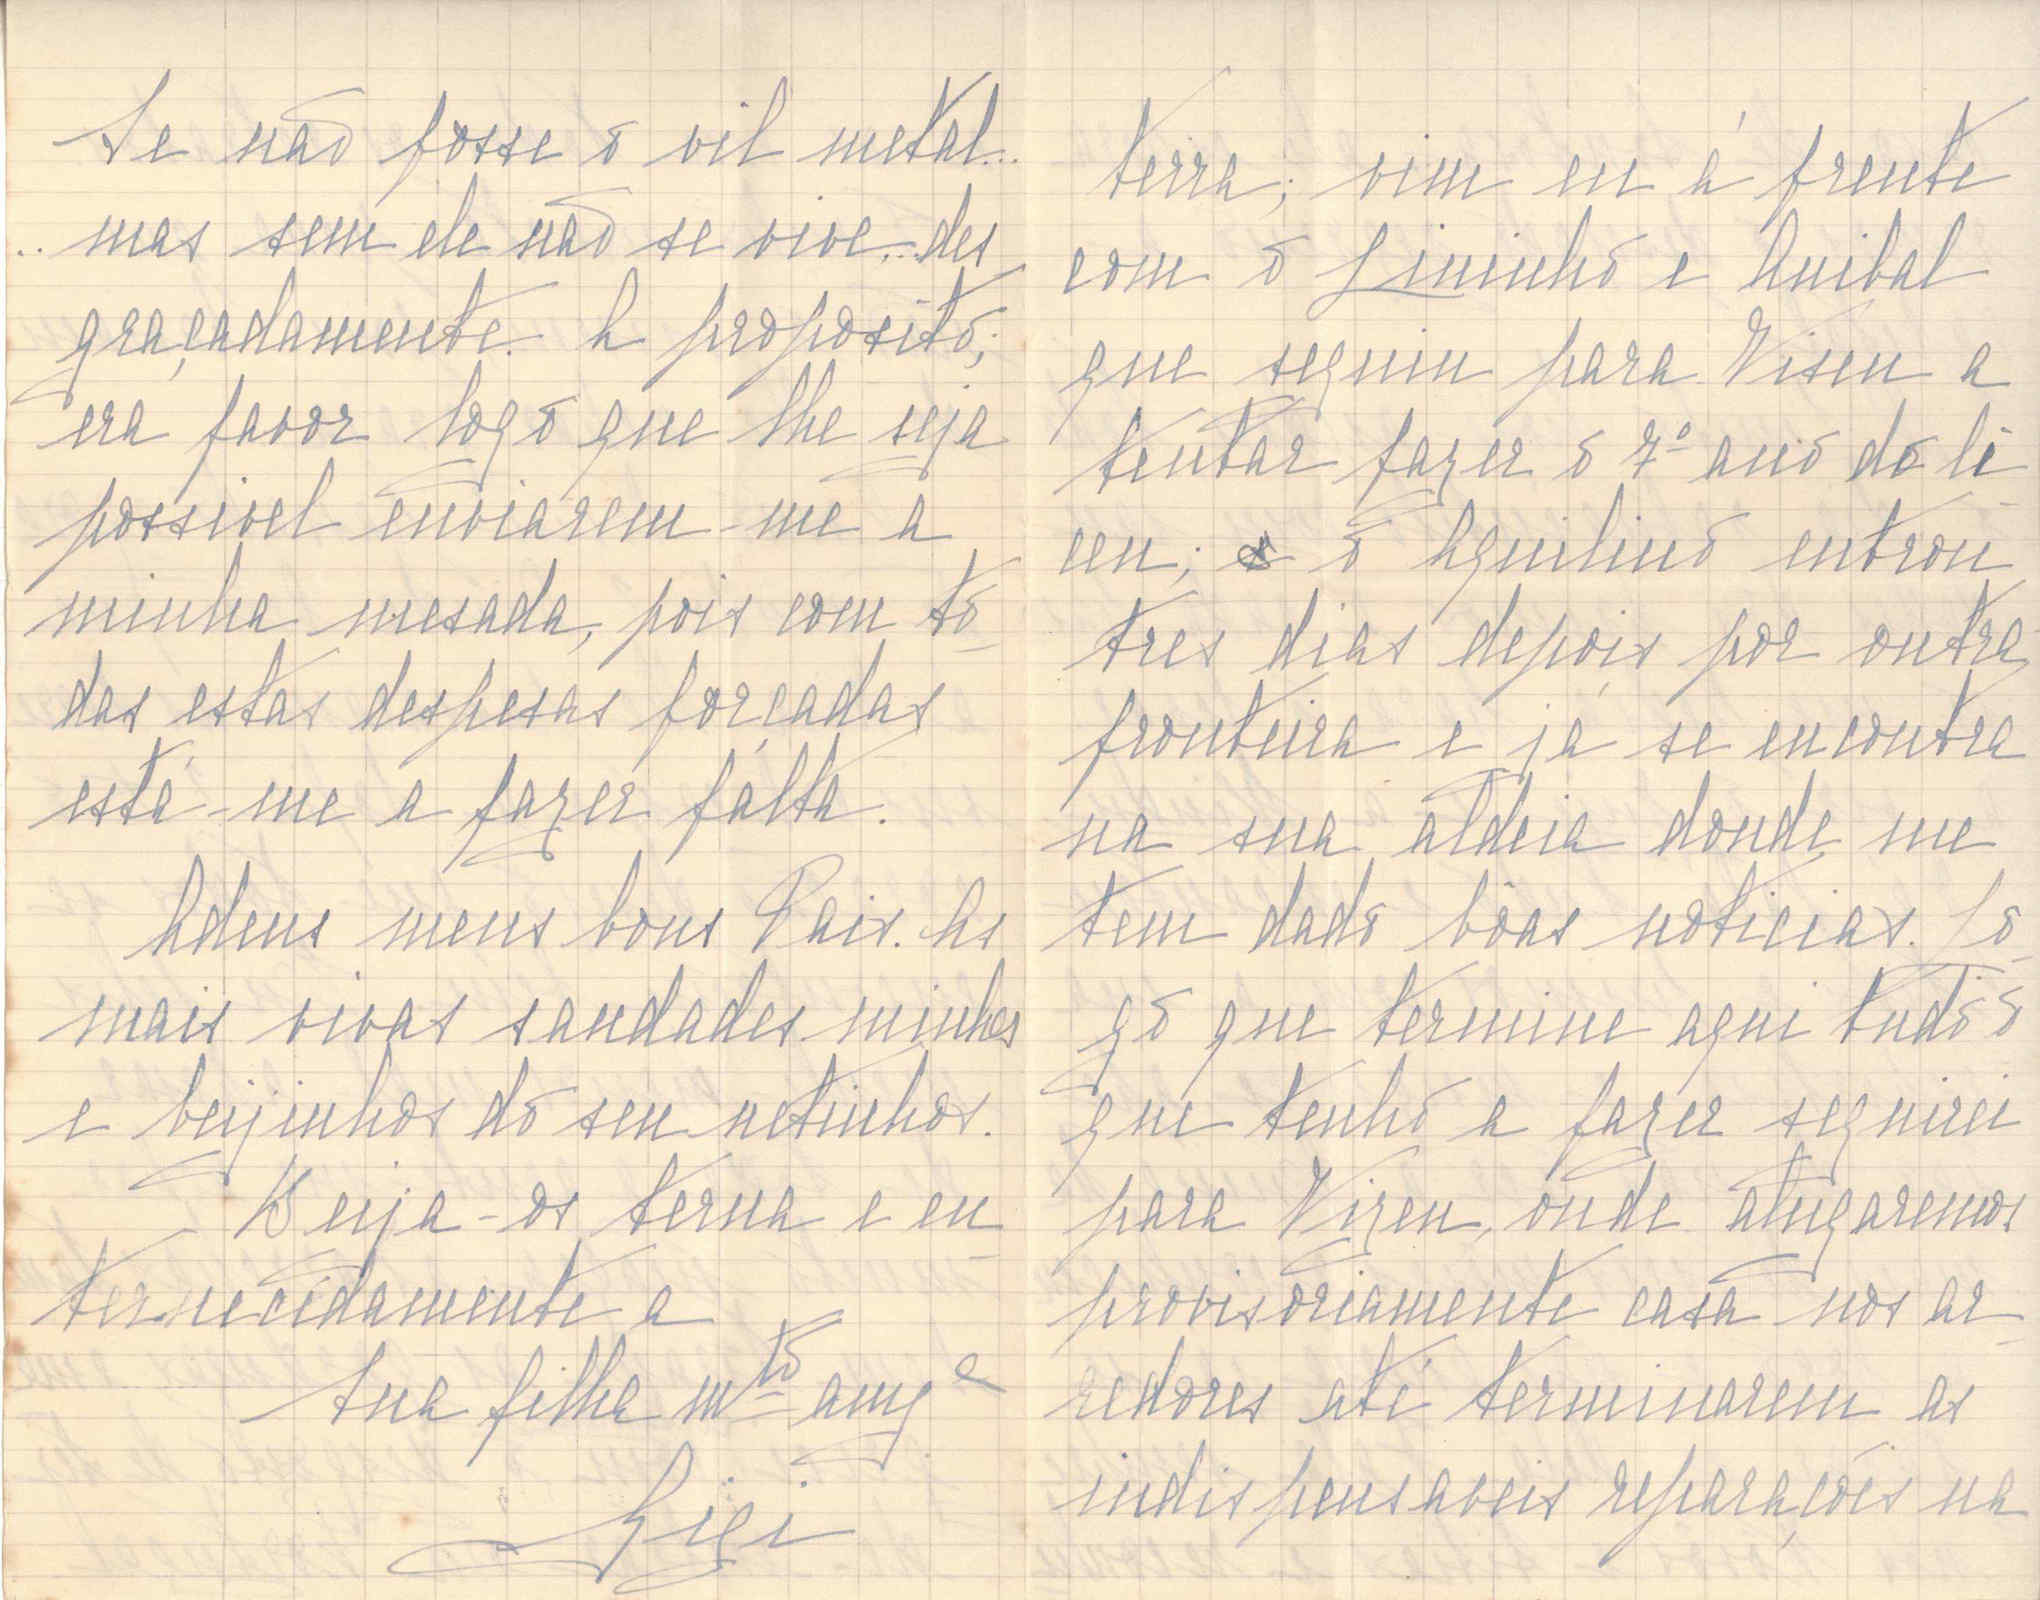 Se não fosse o vil metal...
.. mas sem ele não se vive... des
graçadamente. A proposito;
era favor logo que lhe seja
possivel enviarem-me a
minha mesada, pois com tô-
das estas despesas forçadas
está-me a fazer falta.
Adeus meus bons Pais. As
mais vivas saudades minhas
e beijinhos do seu netinhos.
Beija-os terna e en-
ternecidamente a
sua filha mto amga
Gigi
terra; vim eu á frente
com o Lininho e Anibal
que seguiu para Viseu a
tentar fazer o 7º ano do li-
ceu; o Aquilino entrou
tres dias depois por outra
fronteira e já se encontra
na sua aldeia donde me
tem dado bôas noticias. Lo-
go que termine aqui tudo o
que tenho a fazer seguirei
para Vizeu, onde alugaremos
provisoriamente casa nos ar-
redores até terminarem as
indispensaveis reparaçóis na